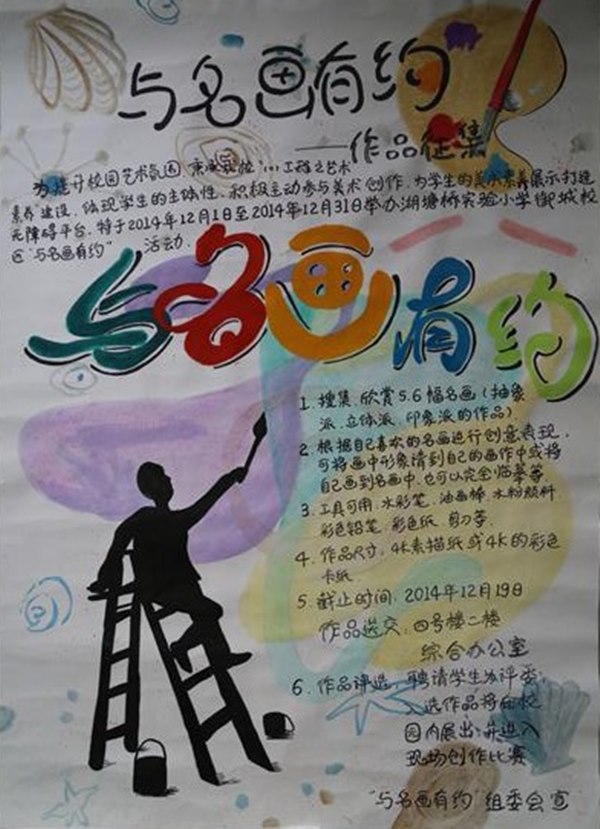 与名画有约
——作品征集
为提升校园艺术氛围
工程之艺术
素养"建设,体现学生的主体性,积极主动参与美术创作,为学生的美术素养展示打造
无障碍平台,特于2014年12月1日至2014年12月31日举办湖塘桥实验小学御城校
区"与名画有约" 活动.
与名画有约
1. 搜集.欣赏5.6幅名画(抽象
派.立体派.印象派的作品)
2. 根据自己喜欢的名画进行创意表现,
可将画中形象请到自己的画作中或将
自己画到名画中.也可以完全临摹等
3. 工具可用.水彩笔.油画棒.水粉颜料.
彩色铅笔.彩色纸.剪刀等.
4. 作品尺寸:4K素描纸或4K的彩色
卡纸
5. 截止时间:2014年12月19日
作品送交:四号楼二楼
综合办公室
6. 作品评选:聘请学生为评委,
选作品将在校
园内展出,并进入
现场创作比赛
"与名画有约"组委会宣